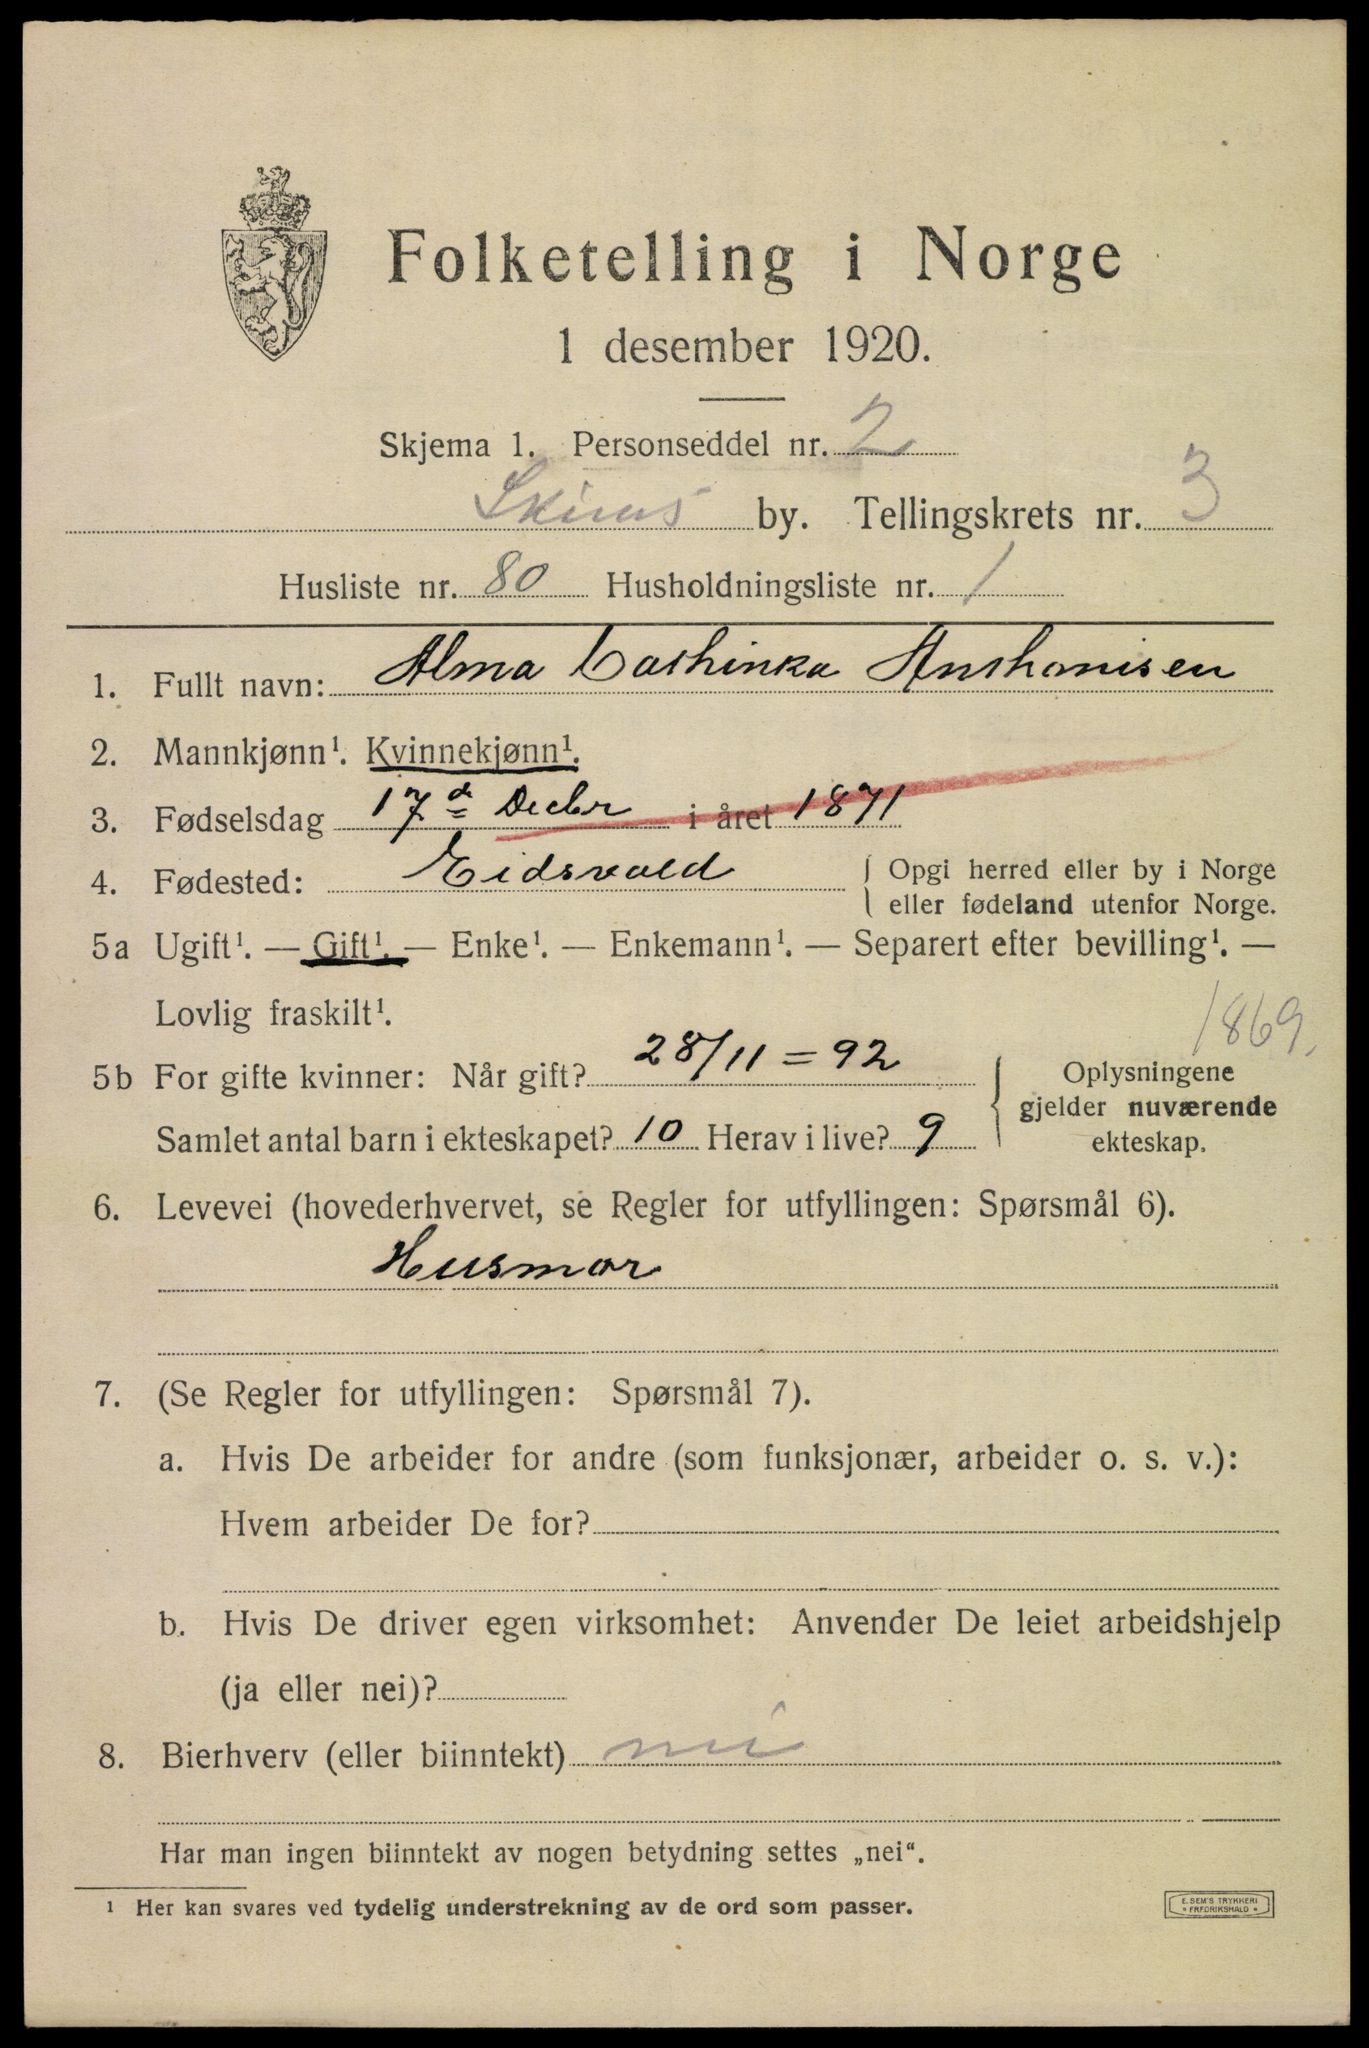 Folketelling i Norge
1 desember 1920.
Skjema 1. Personseddel nr. 2
Skiens by. Tellingskrets nr. 3
Husliste nr. 80 Husholdningsliste nr. 1
1. Fullt navn: Alma Cathinka Anthonisen
2. Mannkjønn¹. Kvinnekjønn¹.
3. Fødselsdag 17d Decbr i året 1871
4. Fødested: Eidsvold { Opgi herred eller by i Norge
eller fødeland utenfor Norge.
5a Ugift¹. — Gift¹. — Enke¹. — Enkemann¹. — Separert efter bevilling¹. —
Lovlig fraskilt¹.
1869.
5b For gifte kvinner: Når gift? 28/11 = 92
Samlet antal barn i ekteskapet? 10 Herav i live? 9
{ Oplysningene
gjelder nuværende
ekteskap.
6. Levevei (hovederhvervet, se Regler for utfyllingen: Spørsmål 6).
Husmor
7. (Se Regler for utfyllingen: Spørsmål 7).
a. Hvis De arbeider for andre (som funksjonær, arbeider o. s. v.):
Hvem arbeider De for?
b. Hvis De driver egen virksomhet: Anvender De leiet arbeidshjelp
(ja eller nei)?
8. Bierhverv (eller biinntekt) nei
Har man ingen biinntekt av nogen betydning settes „nei“.
¹ Her kan svares ved tydelig understrekning av de ord som passer.
E. SEM'S TRYKKERI
* FREDRIKSHALD *